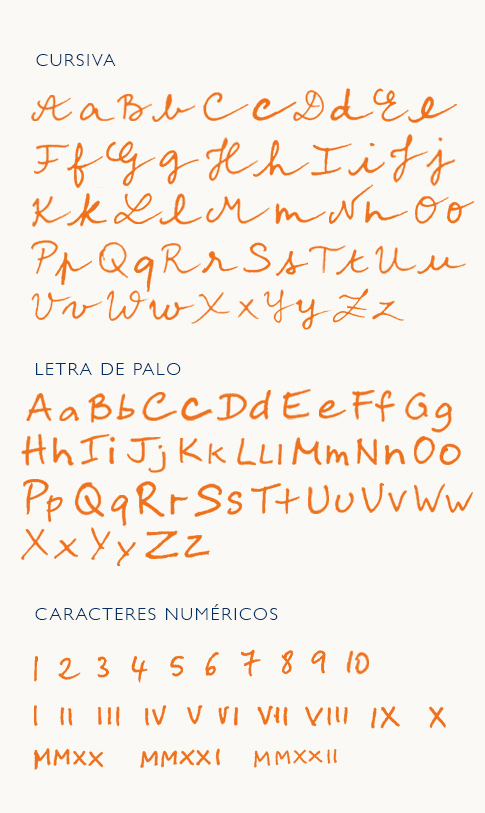 CURSIVA
A a B b C c D d E e
F f G g H h I i J j
K k L l M m N n O o
P p Q q R r S s T t U u
V v W w X x Y y Z z
LETRA DE PALO
A a B b C c D d E e F f G g
H h I i J j K k L L l M m N n O o
P p Q q R r S s T t U u V v W w
X x Y y Z z
CARACTERES NUMÉRICOS
1 2 3 4 5 6 7 8 9 10
I II III IV V VI VII VIII IX X
MMXX MMXXI MMXXII